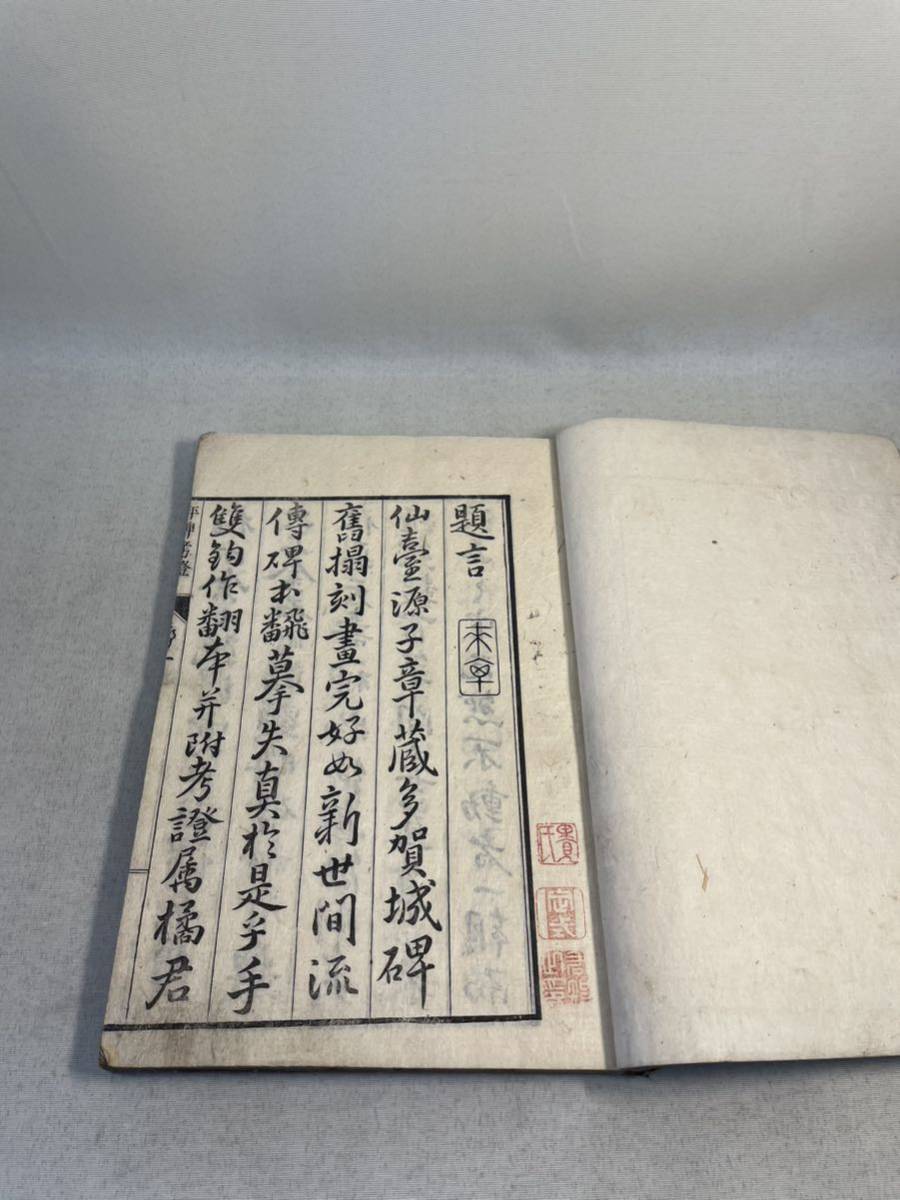 題言
仙臺源子章藏多賀城碑
舊搨刻畫完好如新世間流
傳碑本翻摹失真於是乎手
雙鈎作翻本并附考證属橘君
碑考證